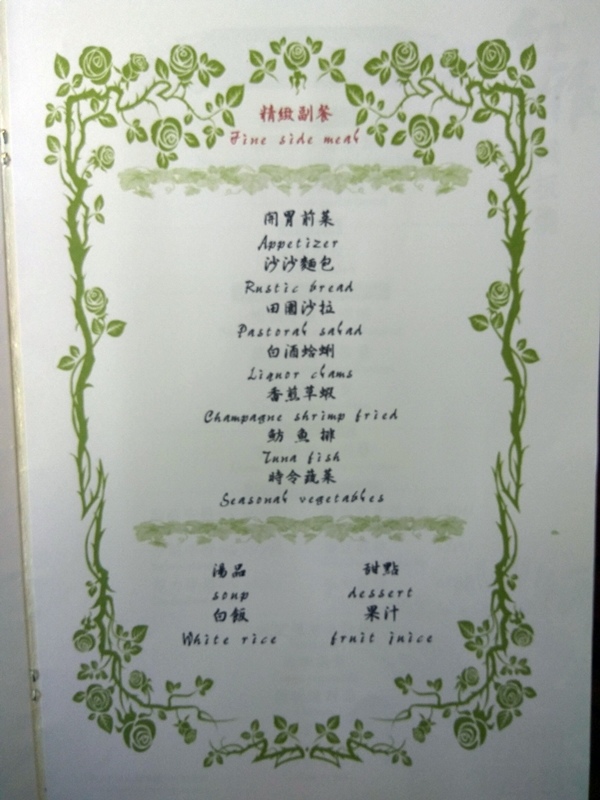 精緻副餐
Fine side meal
開胃前菜
Appetizer
沙沙麵包
Rustic bread
田園沙拉
Pastoral salad
白酒蛤蜊
Liquor clams
香煎草蝦
Champagne shrimp fried
魴魚排
Tuna fish
時令蔬菜
Seasonal vegetables
湯品 甜點
soup dessert
白飯 果汁
White rice fruit juice